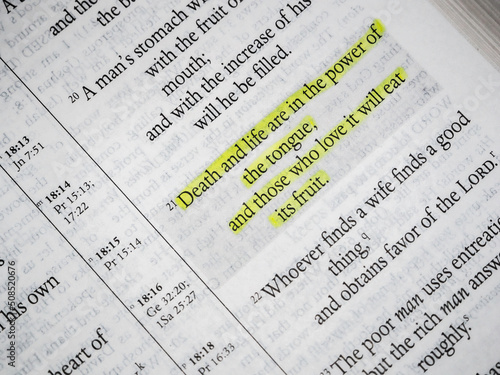 and the
20 A man's stomach
with the fruit of
mouth;
and with the increase of his
will he be filled.
21 Death and life are in the power of
the tongue,
and those who love it will eat
its fruit.
22 Whoever finds a wife finds a good
thing,q
and obtains favor of the LORD.r
23 The poor man uses entreati
but the rich man answ
roughly.s
18:13
Jn 7:51
m 18:14
Pr 15:13;
17:22
n 18:15
Pr 15:14
o 18:16
Ge 32:20;
1Sa 25:27
18:18
Pr 16:33
his own
heart of
Adobe Stock | #508520676